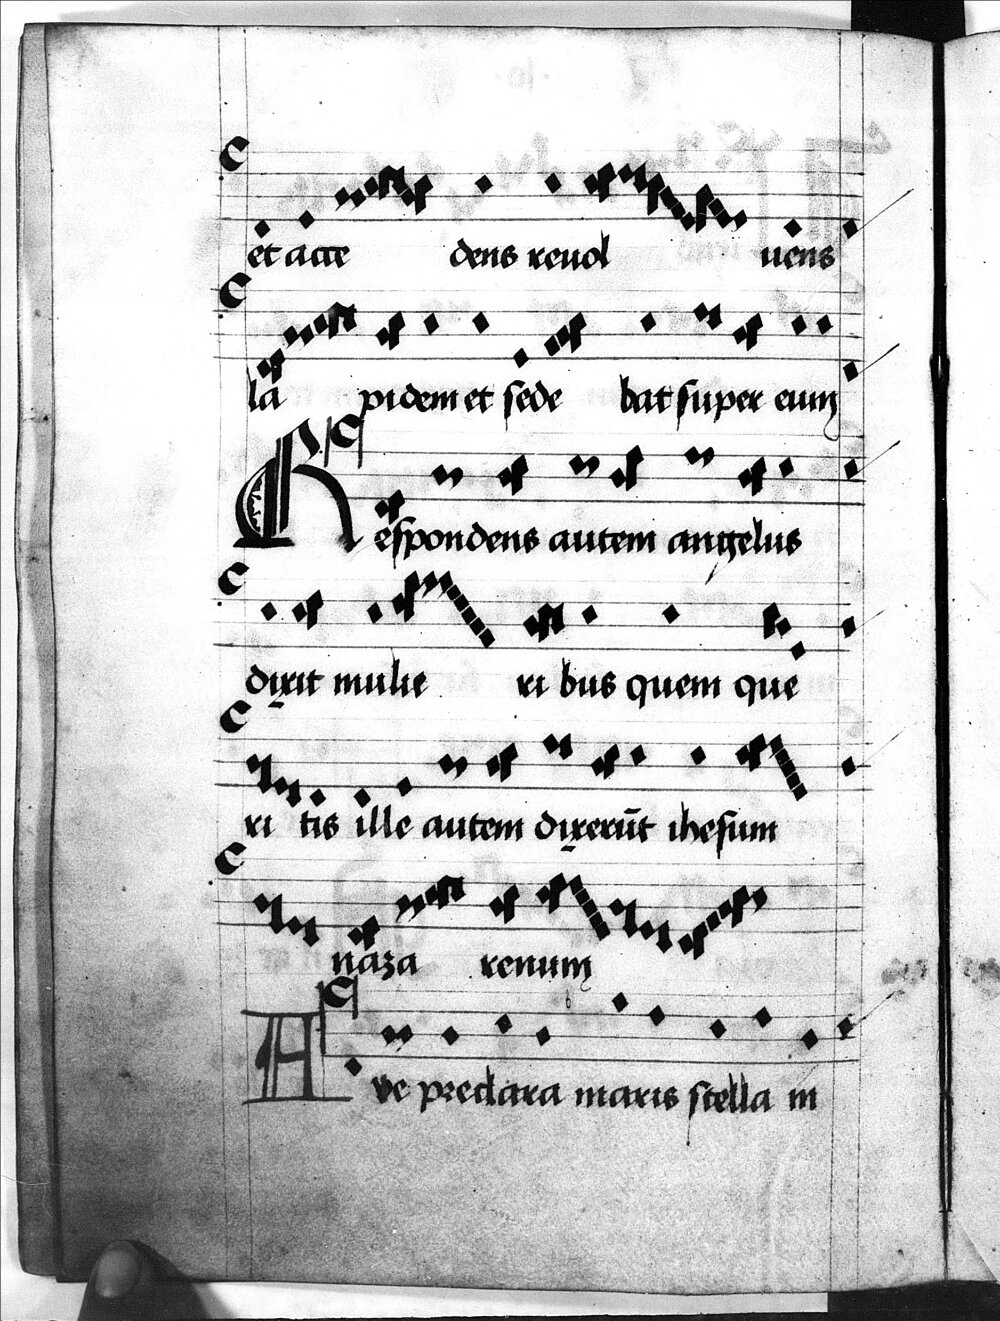 et acce dens reuol uens
la pidem et sede bat super eum
Respondens autem angelus
dixit mulie ri bus quem que
ri tis ille autem dixerūt ihesum
naza renum
Aue preclara maris stella in